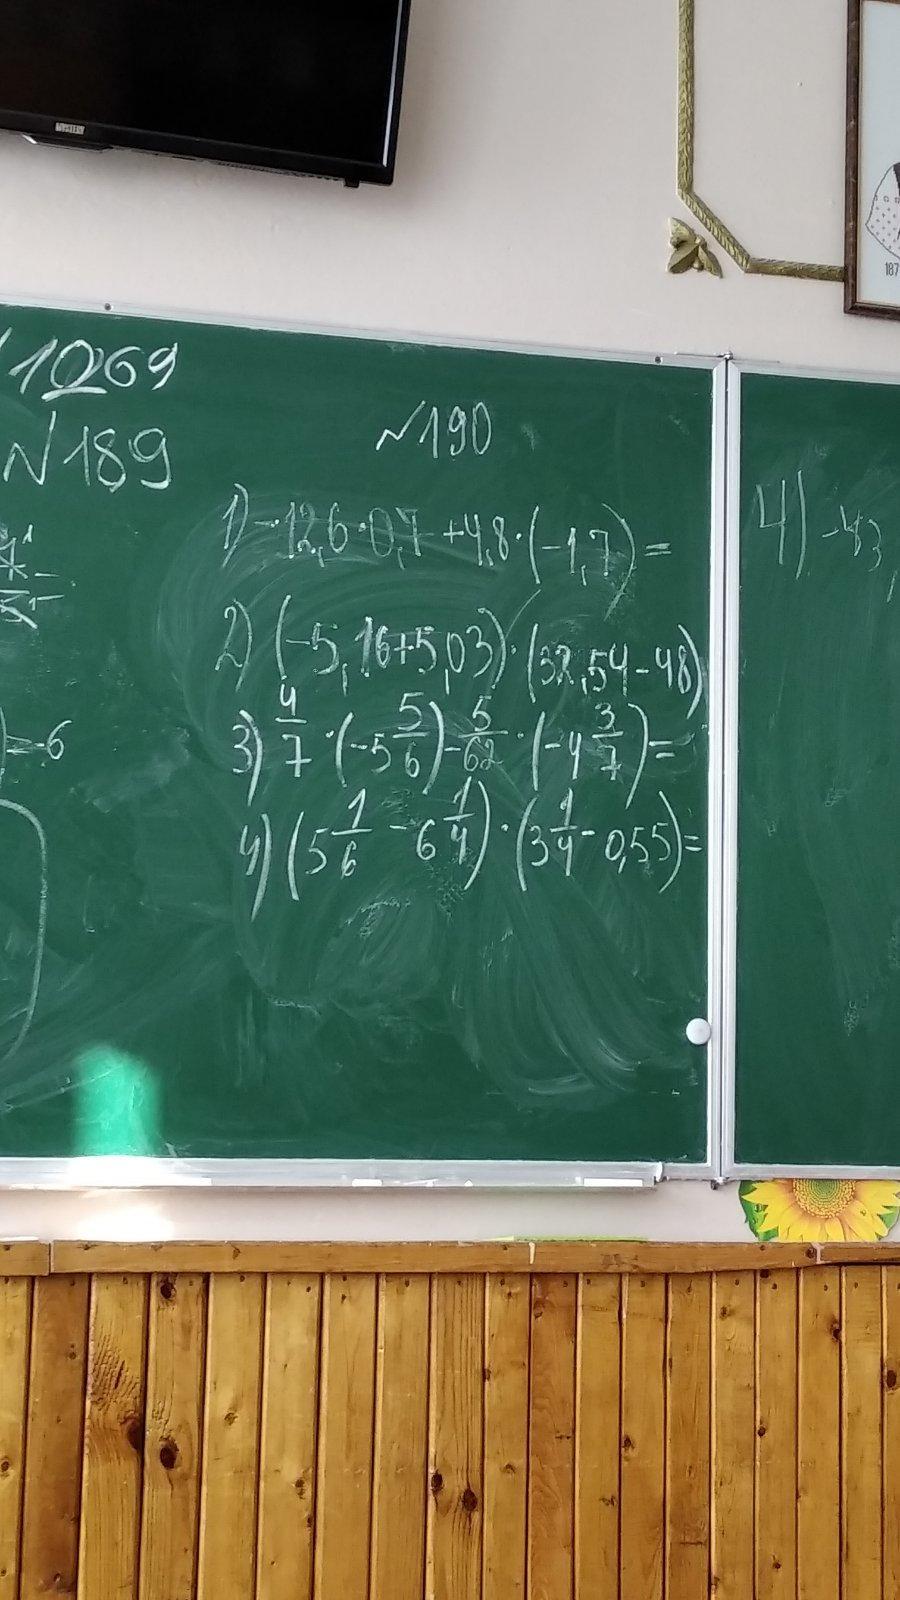 10269
№189
№190
1) -12,6·0,7+4,8·(-1,7)=
2) (-5,16+5,03)·(32,54-48)
3) 4/7·(-5 5/6)-5/62·(-4 3/7)=
4) (5 1/6 - 6 1/4)·(3 1/4 - 0,55)=
4) -43,
)--6
187